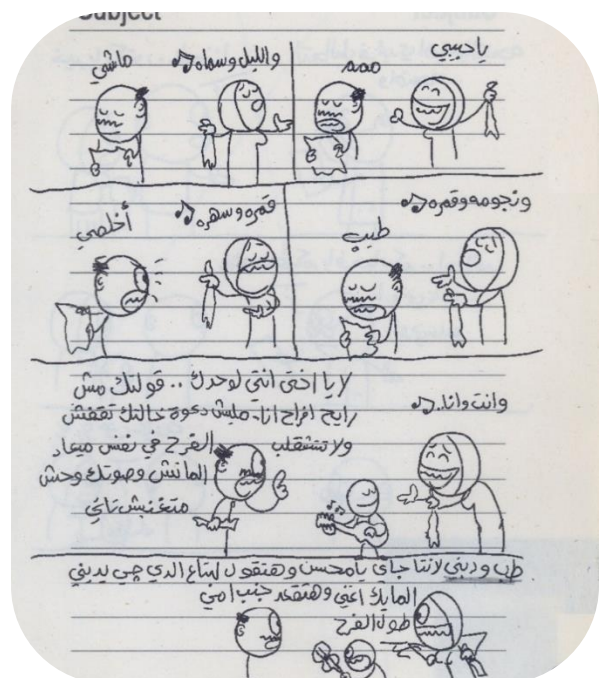 Subject
يا حبيبي
ممم
والليل وسماه
ماشي
ونجومه وقمره
طيب
قمره وسهره
أخلصي
وانت وانا..
لا يا اختي انتي لوحدك .. قولتلك مش
رايح افراح انا.. مليش دعوة خالتك تقفش
ولا تتقلب الفرح في نفس ميعاد
الماتش وصوتك وحش
متغنيش تاني
طب وديني لانتا جاي يا محسن وهتقول لبتاع الدي جي يديني
المايك اغني وهتقعد جنب امي
طول الفرح